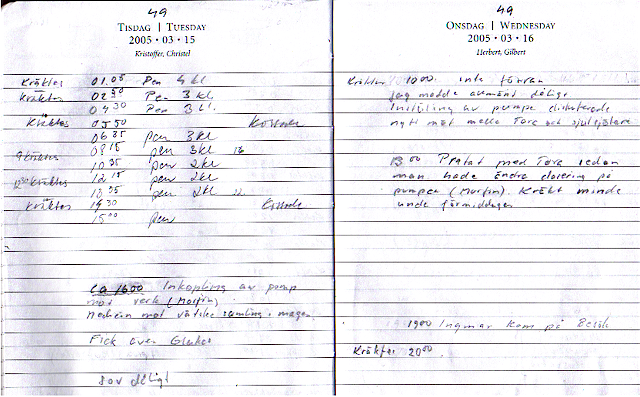 49
TISDAG | TUESDAY
2005 • 03 • 15
Kristoffer, Christel
Kräktes 01.05 Pen 4 kl
Kräktes 02 50 Pen 3 kl
04 30 Pen 3 kl.
Kräktes 05 50
06 35 pen 3kl
Kräktes 08 15 pen 3kl
10 35 pen 2kl
Kräktes 12 15 pen 2kl
13 35 pen 2kl
Kräktes 14 30
15 00 pen
Ca 1600 Inkopling av pump
mot verk (Morfin)
mot vätske samling i magen
Fick även Glukos
Sov dåligt
49
ONSDAG | WEDNESDAY
2005 • 03 • 16
Herbert, Gilbert
Kräktes 1000. inte förran
jag mådde allmänt dåligt
av pumpe
nytt möt mella Tore och
13 00 Pratat med Tore sedan
man hade ändra dosering på
pumpen (Morfin). Kräkt mindre
unde förmiddagen
1900 Ingmar kom på Besök
Kräktes 20 00.